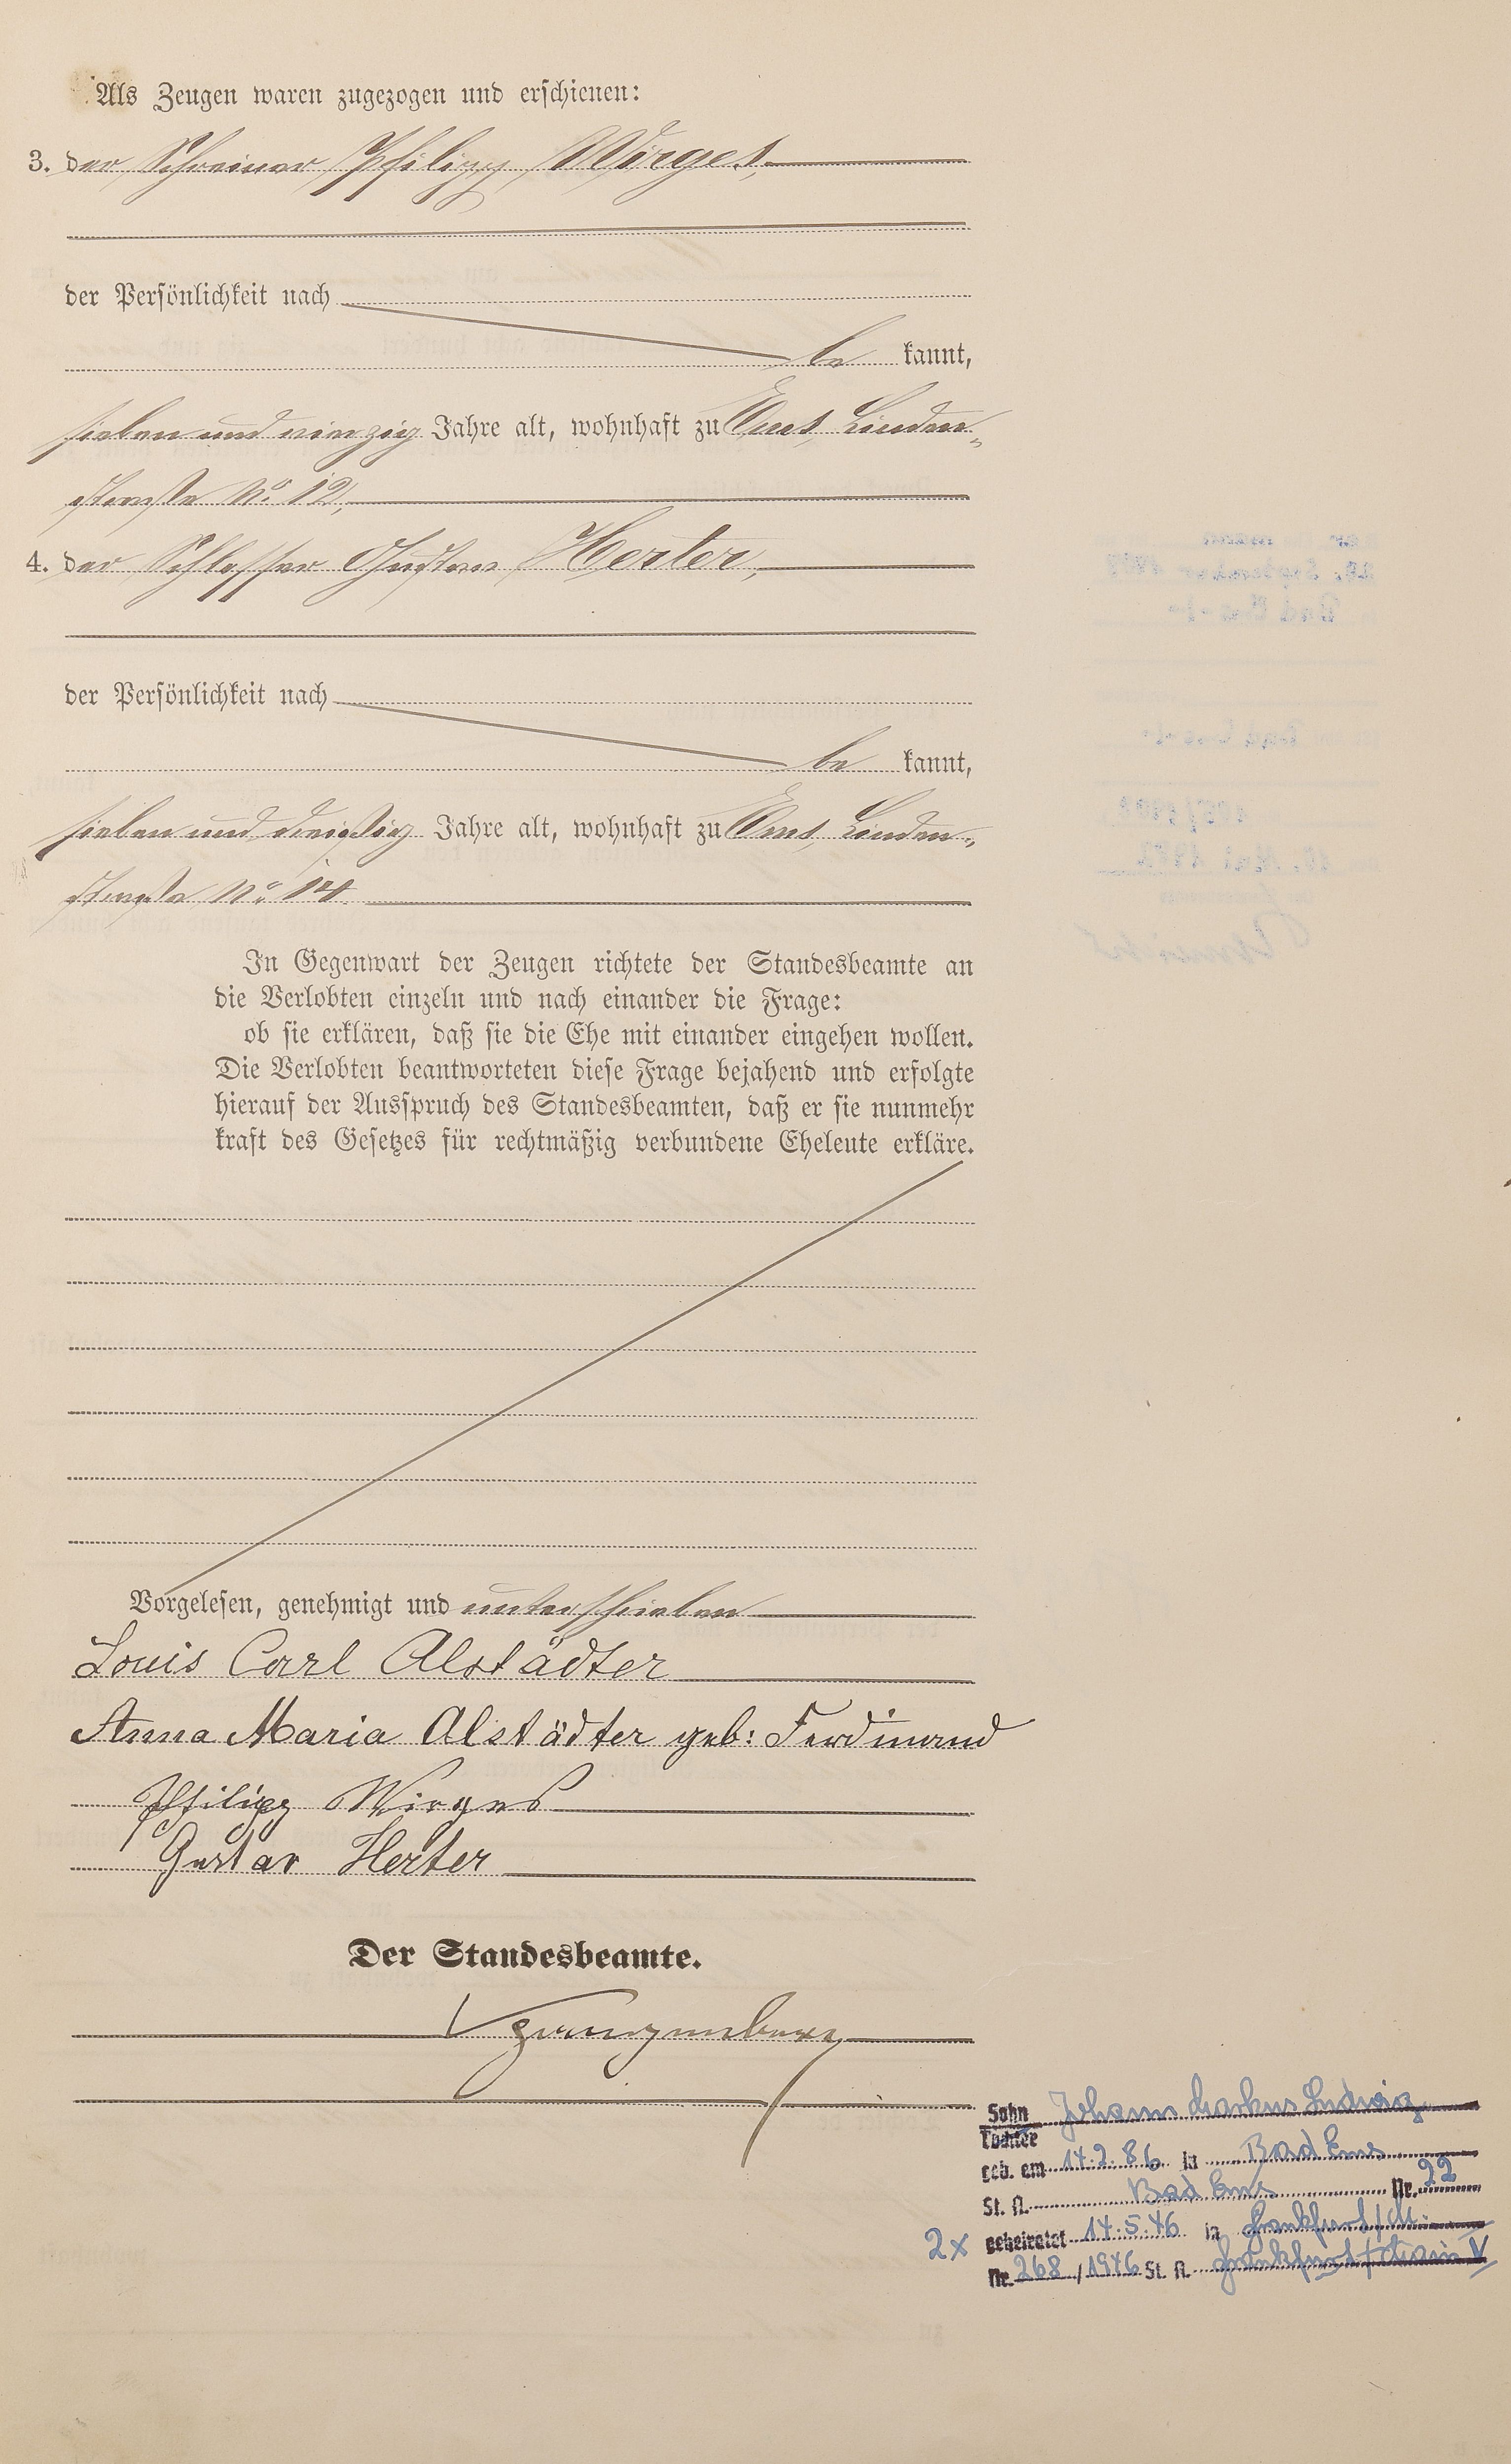 Als Zeugen waren zugezogen und erschienen:
3. der Schreiner Philipp Wirges,
der Persönlichkeit nach
be kannt,
sieben und vierzig Jahre alt, wohnhaft zu Ems, Linden-
straße No. 12,
4. der Schlosser Gustav Herter,
der Persönlichkeit nach
be kannt,
sieben und dreißig Jahre alt, wohnhaft zu Ems, Linden-
straße No. 14.
In Gegenwart der Zeugen richtete der Standesbeamte an
die Verlobten einzeln und nach einander die Frage:
ob sie erklären, daß sie die Ehe mit einander eingehen wollen.
Die Verlobten beantworteten diese Frage bejahend und erfolgte
hierauf der Ausspruch des Standesbeamten, daß er sie nunmehr
kraft des Gesetzes für rechtmäßig verbundene Eheleute erkläre.
Vorgelesen, genehmigt und unterschrieben
Louis Carl Alstädter
Anna Maria Alstädter geb: Ferdinand
Philipp Wirges
Gustav Herter
Der Standesbeamte.
Sohn Johann Markus Ludwig
Tochter
geb. am 14.2.86 in Bad Ems
St. A. Bad Ems Nr. 22
2x geheiratet 14.5.46 in Frankfurt/M.
Nr. 268 / 1946 St. A. Frankfurt/Main V